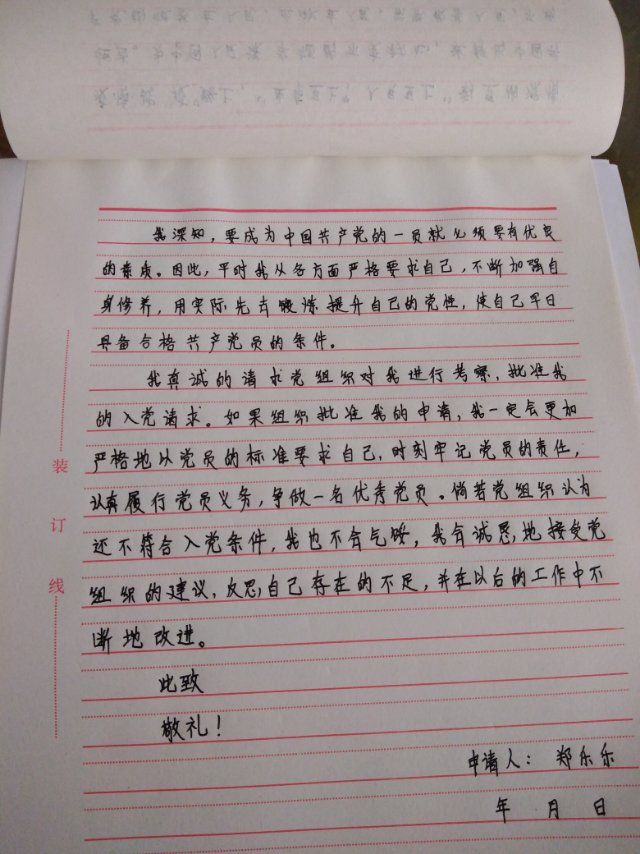 我深知，要成为中国共产党的一员就必须要有优良
的素质。因此，平时我从各方面严格要求自己，不断加强自
身修养，用实际先去锻炼提升自己的党性，使自己早日
具备合格共产党员的条件。
我真诚的请求党组织对我进行考察，批准我
的入党请求。如果组织批准我的申请，我一定会更加
严格地以党员的标准要求自己，时刻牢记党员的责任，
认真履行党员义务，争做一名优秀党员。倘若党组织认为
还不符合入党条件，我也不会气馁，我会诚恳地接受党
组织的建议，反思自己存在的不足，并在以后的工作中不
断地改进。
此致
敬礼！
申请人：郑乐乐
年 月 日
装
订
线